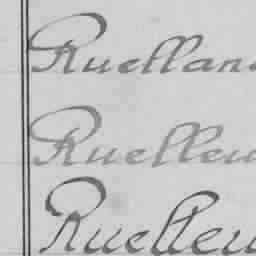 Ruellan
Ruelleu
Ruelleu